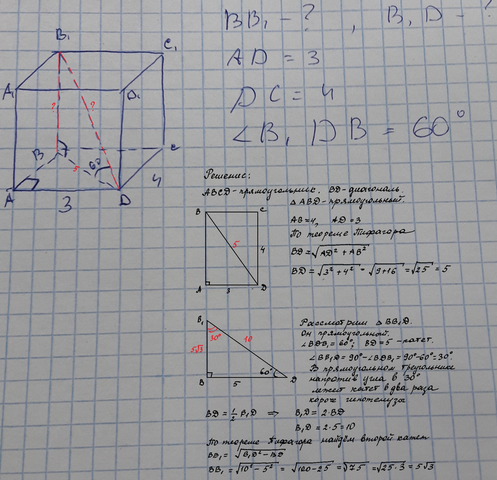 BB₁ - ? , B₁D - ?
AD = 3
DC = 4
∠B₁DB = 60°
B₁
C₁
A₁
D₁
?
?
B
C
60°
5
4
A
3
D
Решение:
ABCD-прямоугольник. BD-диагональ
△ABD-прямоугольный
AB=4, AD=3
По теореме Пифагора
BD=√AD²+AB²
BD=√3²+4² = √9+16 = √25 = 5
B
C
5
4
A
3
D
Рассмотрим △BB₁D.
Он прямоугольный.
∠BDB₁=60°; BD=5-катет.
∠BB₁D=90°-∠BDB₁=90°-60°=30°
В прямоугольном треугольнике
напротив угла в 30°
лежит катет в два раза
короче гипотенузы
B₁
30°
10
5√3
60°
B
5
D
BD=½B₁D ⇒ B₁D=2·BD
B₁D=2·5=10
По теореме Пифагора найдём второй катет
BB₁=√B₁D²-BD
BB₁=√10²-5² = √100-25 = √75 = √25·3 = 5√3